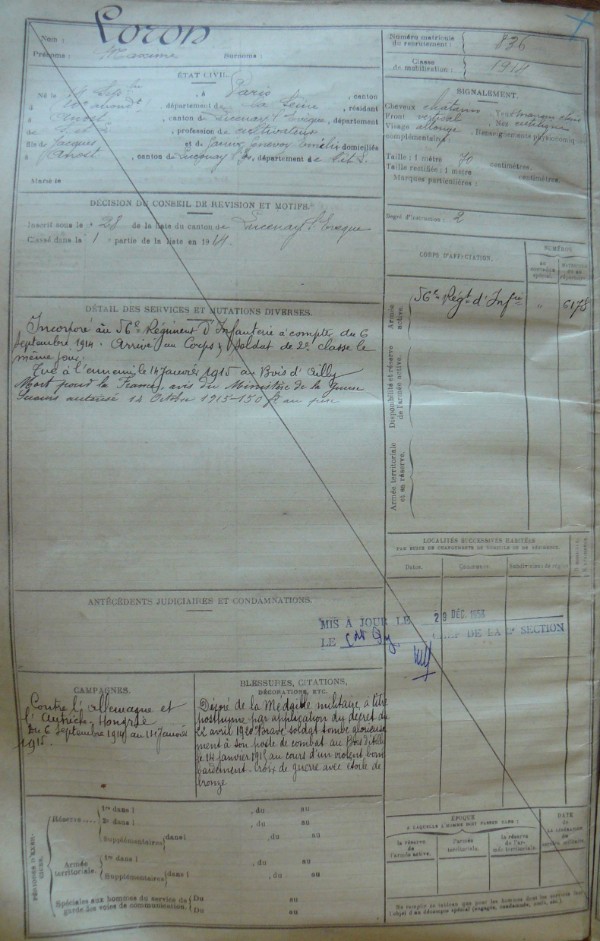 Nom : Loron
Prénoms : Maxime Surnoms :
Numéro matricule du recrutement : 836
Classe de mobilisation : 1914
ÉTAT CIVIL.
Né le Sept , à Paris , canton
d , département de la Seine, résidant
à Anost , canton de Lucenay l'Evêque, département
de S et L , profession de cultivateur
fils de Jacques et de , domiciliés
à Anost , canton de Lucenay l' , département de S et L
Marié à
SIGNALEMENT.
Cheveux chatains , Yeux
Front vertical , Nez
Visage allongé , Renseignements physionomiques
complémentaires.
Taille : 1 mètre 70 centimètres.
Taille rectifiée : 1 mètre centimètres.
Marques particulières :
DÉCISION DU CONSEIL DE REVISION ET MOTIFS.
Inscrit sous le n° 28 de la liste du canton de Lucenay l'Evêque
Classé dans la 1 partie de la liste en 1914
Degré d'instruction : 2
CORPS D'AFFECTATION.
NUMÉROS
Armée active.
56e Régt d'Infie
6178
Disponibilité et réserve de l'armée active.
Armée territoriale et sa réserve.
DÉTAIL DES SERVICES ET MUTATIONS DIVERSES.
Incorporé au 56e Régiment d'Infanterie à compter du 6
septembre 1914. Arrivé au Corps & soldat de 2e classe le
même jour.
Tué à l'ennemi le 14 Janvier 1915 au Bois d'Ailly
Mort pour la France, avis du Ministère de la Guerre
Secours autorisé 13 Octobre 1915 - 150 f au père
LOCALITÉS SUCCESSIVES HABITÉES
PAR SUITE DE CHANGEMENTS DE DOMICILE OU DE RÉSIDENCE.
Dates. Communes. Subdivisions de région
ANTÉCÉDENTS JUDICIAIRES ET CONDAMNATIONS.
MIS A JOUR LE 29 DÉC. 1954
LE DE LA 2e SECTION
CAMPAGNES.
Contre l'Allemagne et
l'Autriche Hongrie
Du 6 Septembre 1914 au 14 janvier
1915.
BLESSURES, CITATIONS,
DÉCORATIONS, ETC.
Décoré de la Médaille militaire, à titre
posthume par application du décret du
avril 1920 "Brave soldat tombé glorieuse
ment à son poste de combat au Bois d'Ailly
le 14 janvier 1915 au cours d'un violent bom
bardement. Croix de guerre avec étoile de
bronze
PÉRIODES D'EXERCICES.
Réserve
1re dans l , du au
2e dans l , du au
Supplémentaires dans l , du au
Armée territoriale.
1re dans l , du au
Supplémentaires dans l , du au
Spéciales aux hommes du service de garde des voies de communication.
Du au
Du au
ÉPOQUE
A LAQUELLE L'HOMME DOIT PASSER DANS :
la réserve de l'armée active.
l'armée territoriale.
la réserve de l'armée territoriale.
DATE
DE LA LIBÉRATION DU SERVICE MILITAIRE.